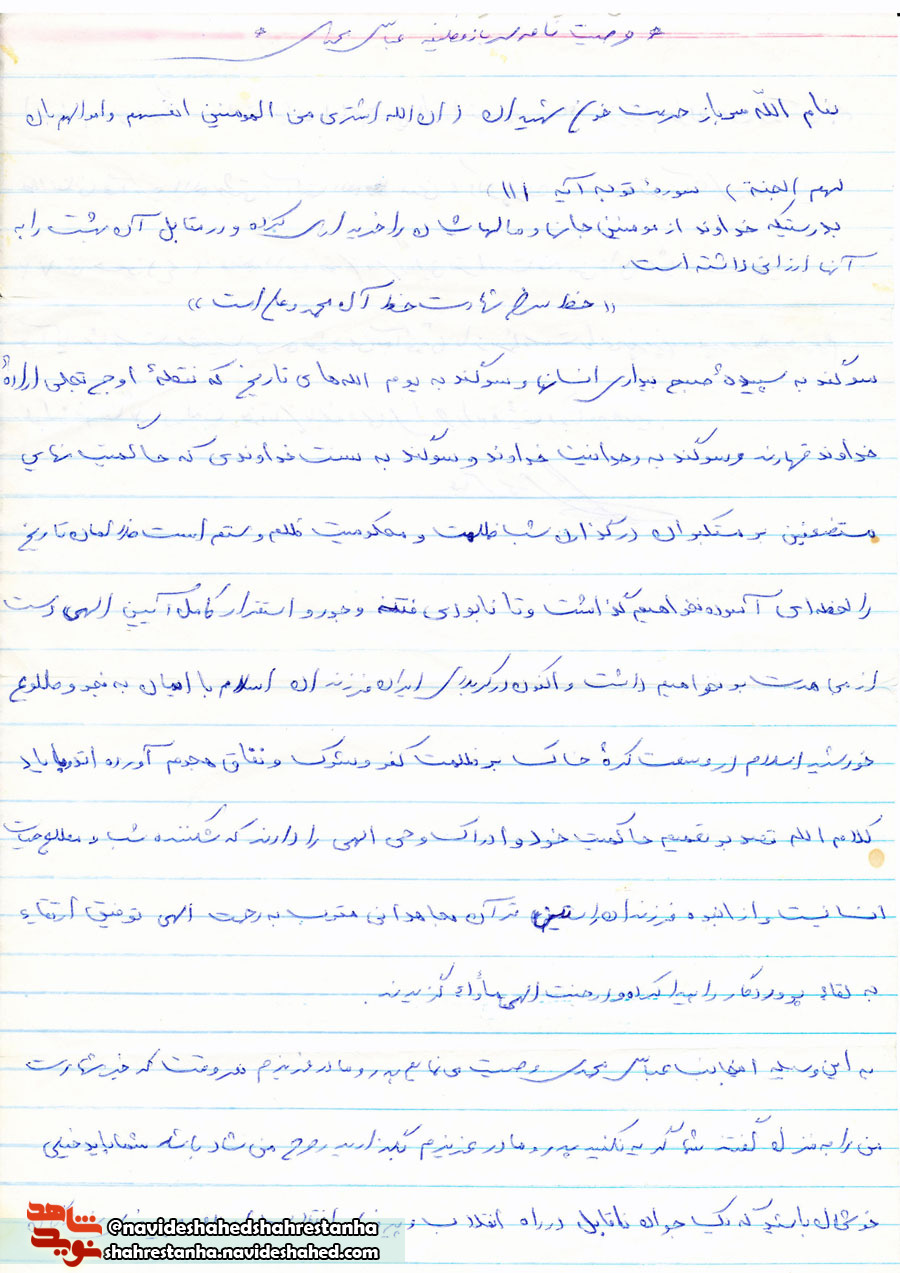 * وصیت نامه سرباز وظیفه عباس محمدی *
بنام الله سرباز حرمت خون شهیدان (ان الله اشتری من المومنین انفسهم و اموالهم بان
لهم الجنة) سورهٔ توبه آیه (۱۱۱)
بدرستیکه خداوند از مومنین جانها و مالهایشان را خریداری کرده و در مقابل آن بهشت را به
آنها ارزانی داشته است.
«خط سرخ شهادت خط آل محمد و علی است»
سوگند به سپیدهٔ صبح بیداری انسانها و سوگند به یوم الله های تاریخ که نقطهٔ اوج تجلی ارادهٔ
خداوند قهارند و سوگند به وحدانیت خداوند و سوگند به سنت خداوندی که حاکمیت نهایی
مستضعفین بر مستکبران در گذار شب ظلمت و محکومیت ظلم و ستم است ظالمان تاریخ
را لحظه‌ای آسوده نخواهیم گذاشت و تا نابودی فتنه و جور و استقرار کامل آئین الهی دست
از مجاهدت بر نخواهیم داشت و اکنون در کربلای ایران فرزندان اسلام با ایمان به فجر و طلوع
خورشید اسلام در وسعت کرهٔ خاک بر ظلمت کفر و شرک و نفاق هجوم آورده اند و با یاد
کلام الله قصد بر تعمیم حاکمیت خدا و ادراک وحی الهی را دارند که شکننده شب و مطلع حیات
انسانیت و از انبوه فرزندان راستین قرآن مجاهدانی مقرب به رحمت الهی توفیق ارتقاء
به لقاء پروردگار را پیدا کرده و در جنت الهی مأواء گزیدند.
به این وسیله اینجانب عباس محمدی وصیت می نمایم پدر و مادر عزیزم هر وقت که خبر شهادت
من را به منزل گفتند شما گریه نکنید پدر و مادر عزیزم بگذارید روح من شاد باشد شما باید خیلی
خوشحال باشید که یک جوان ناقابل در راه انقلاب و پیروزی انقلاب
شاهد
نوید
@navideshahedshahrestanha
shahrestanha.navideshahed.com